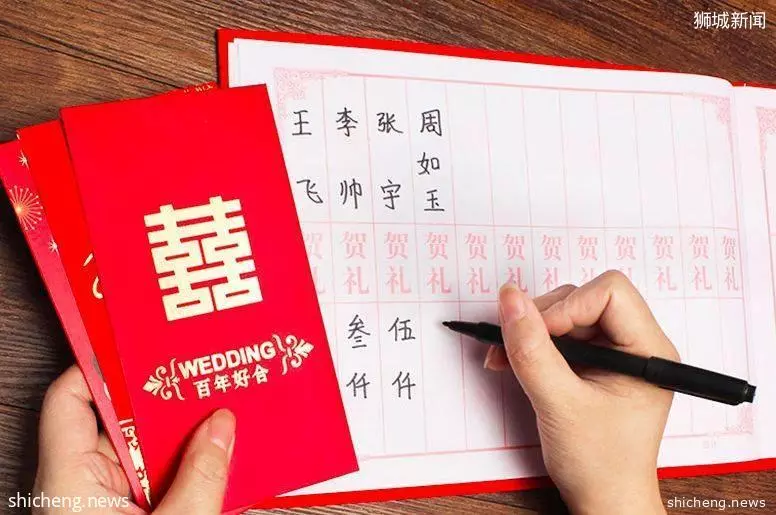 狮城新闻
王飞
李帅
张宇
周如玉
贺礼
贺礼
贺礼
贺礼
贺礼
贺礼
贺礼
贺礼
贺礼
贺礼
贺礼
贺礼
叁仟
伍仟
囍
WEDDING
百年好合
shicheng.news
shicheng.news